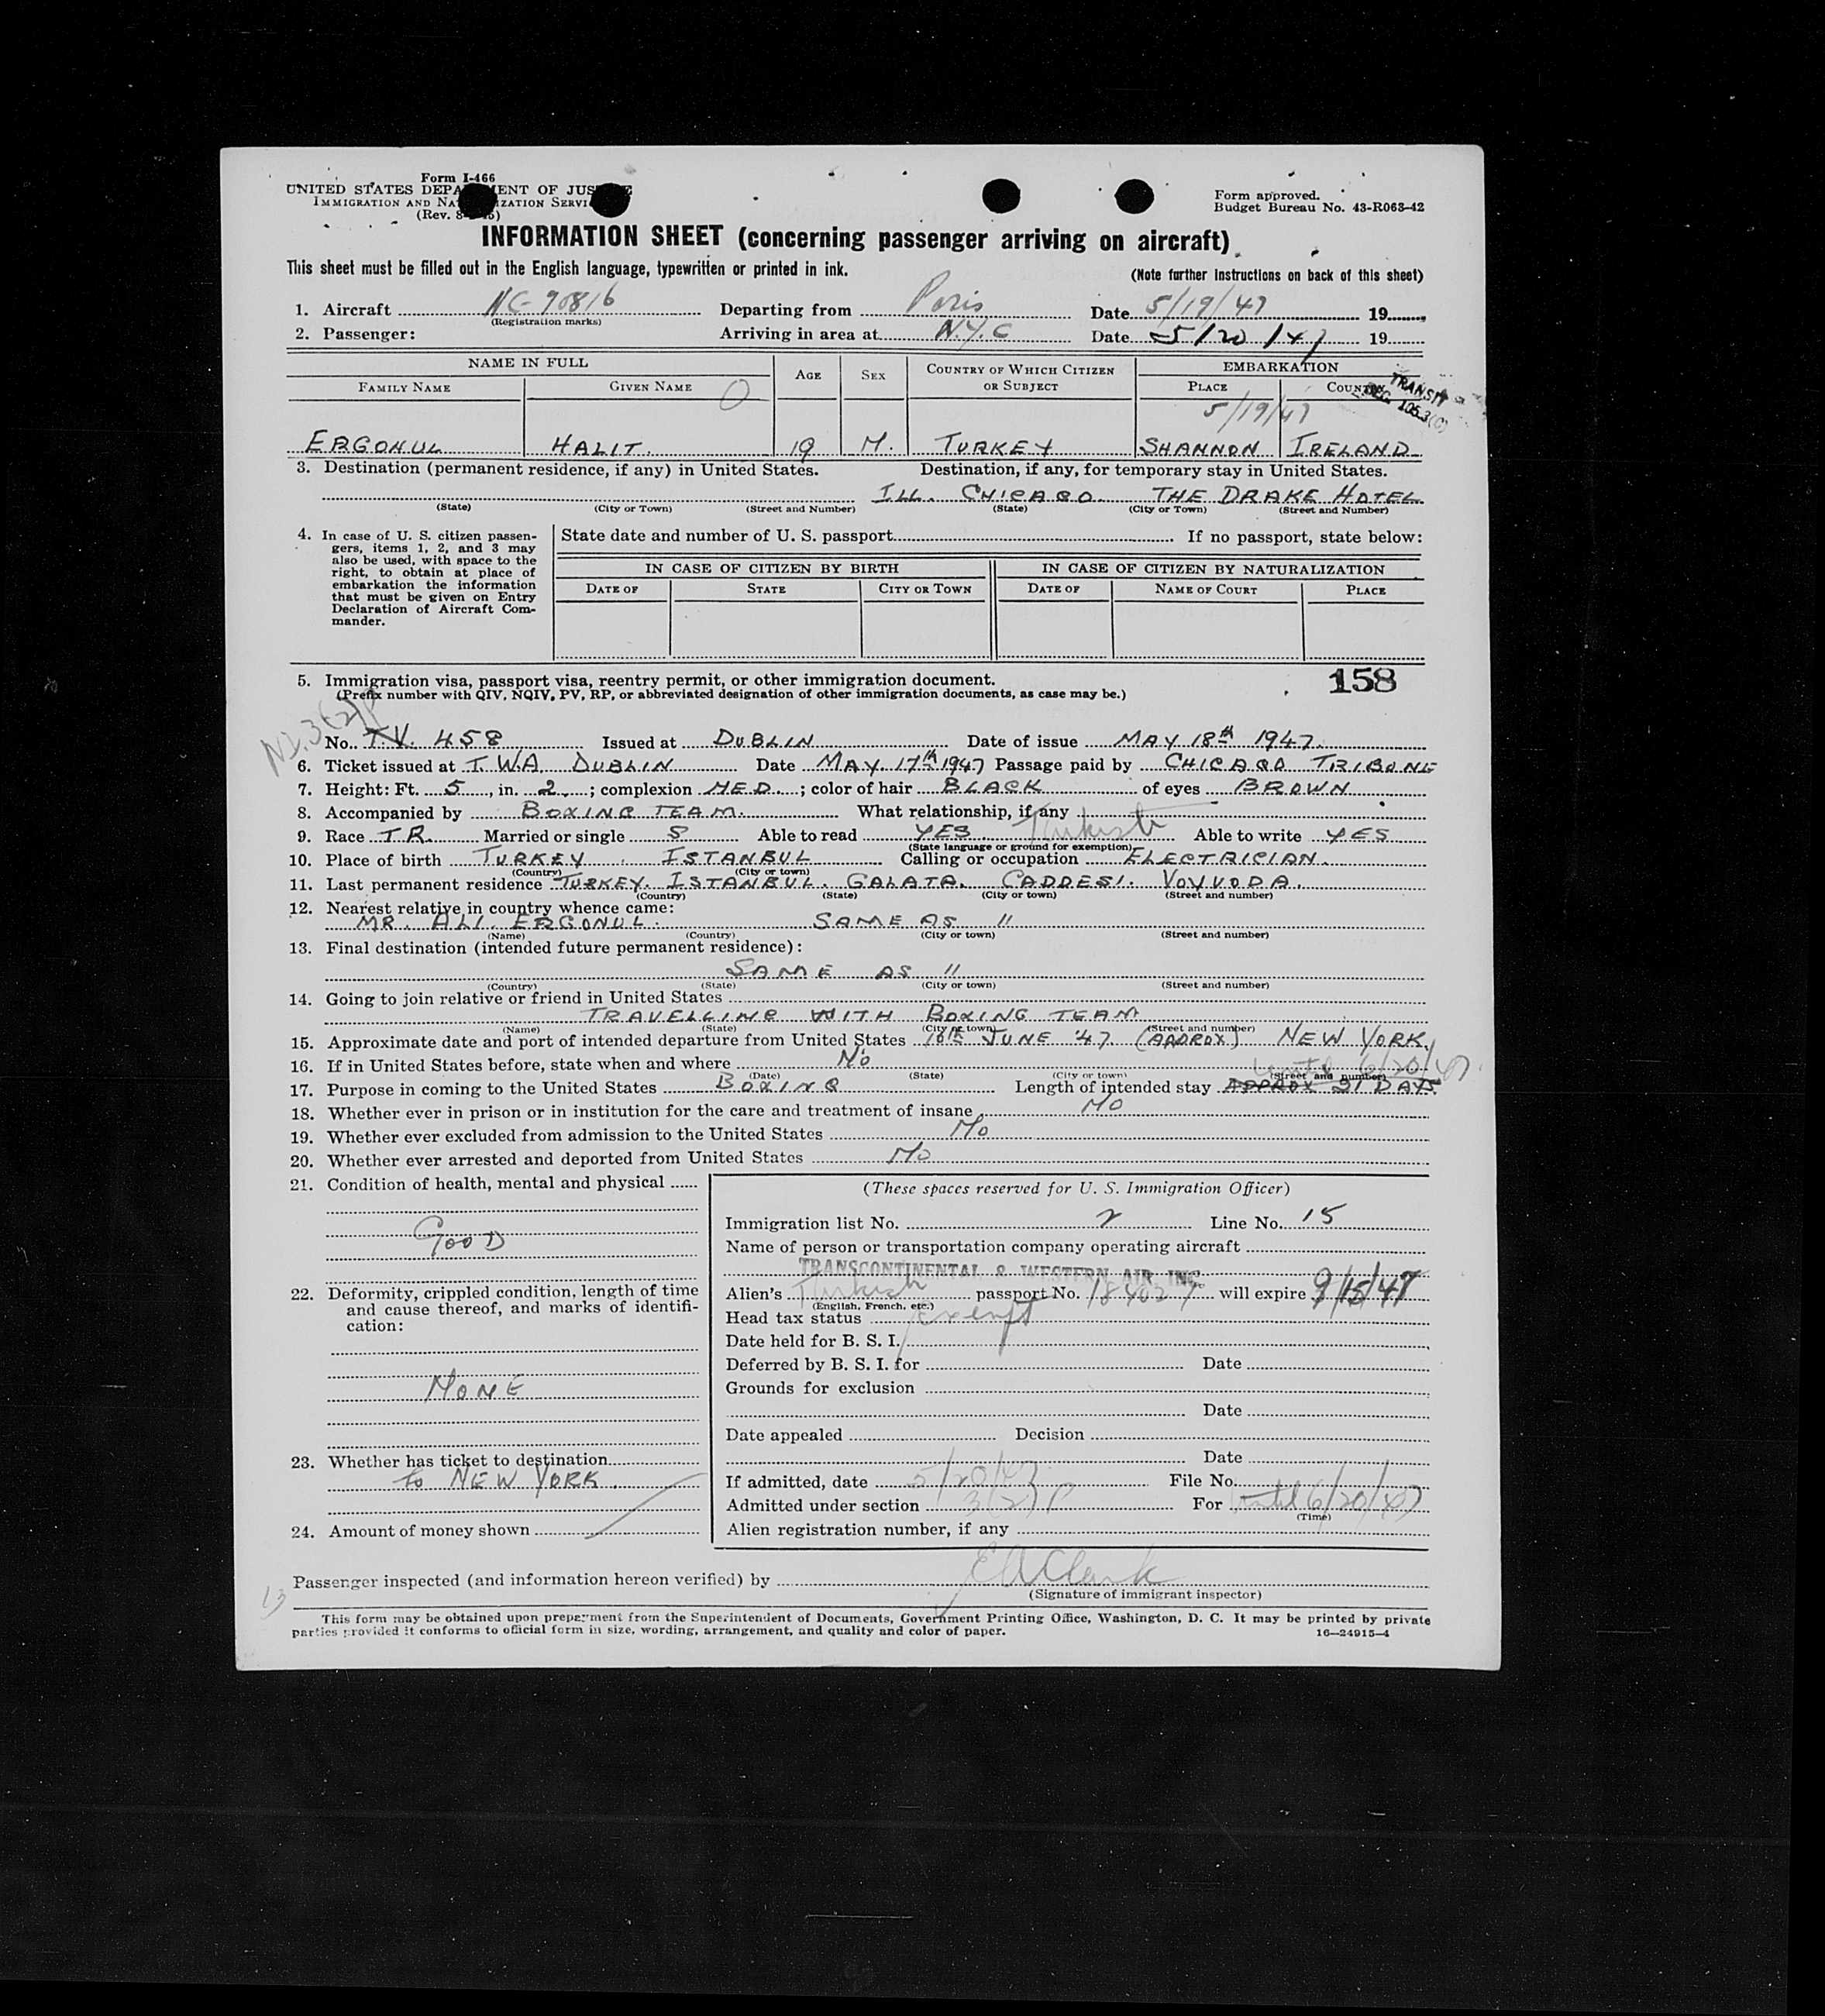 Form I-466
UNITED STATES DEPARTMENT OF JUSTICE
IMMIGRATION AND NATURALIZATION SERVICE
(Rev. 8- 45)
Form approved.
Budget Bureau No. 43-R063-42
INFORMATION SHEET (concerning passenger arriving on aircraft)
This sheet must be filled out in the English language, typewritten or printed in ink.
(Note further instructions on back of this sheet)
1. Aircraft NC-90816 Departing from Paris Date 5/19/47 19
(Registration marks)
2. Passenger: Arriving in area at N.Y.C Date 5/20/47 19
NAME IN FULL AGE SEX COUNTRY OF WHICH CITIZEN OR SUBJECT EMBARKATION
FAMILY NAME GIVEN NAME PLACE COUNTRY
TRANSIT
REG. 105.3(C)
5/19/47
ERGONUL HALIT. 19 M. TURKEY SHANNON IRELAND
3. Destination (permanent residence, if any) in United States. Destination, if any, for temporary stay in United States.
ILL. CHICAGO. THE DRAKE HOTEL
(State) (City or Town) (Street and Number) (State) (City or Town) (Street and Number)
4. In case of U. S. citizen passengers, items 1, 2, and 3 may also be used, with space to the right, to obtain at place of embarkation the information that must be given on Entry Declaration of Aircraft Commander.
State date and number of U. S. passport If no passport, state below:
IN CASE OF CITIZEN BY BIRTH IN CASE OF CITIZEN BY NATURALIZATION
DATE OF STATE CITY OR TOWN DATE OF NAME OF COURT PLACE
5. Immigration visa, passport visa, reentry permit, or other immigration document.
(Prefix number with QIV, NQIV, PV, RP, or abbreviated designation of other immigration documents, as case may be.)
158
3(2)P
No. T.V. 458 Issued at DUBLIN Date of issue MAY 18th 1947.
6. Ticket issued at T.W.A. DUBLIN Date MAY 17th 1947 Passage paid by CHICAGO TRIBUNE
7. Height: Ft. 5, in. 2; complexion MED.; color of hair BLACK of eyes BROWN
8. Accompanied by BOXING TEAM. What relationship, if any
9. Race TR. Married or single S Able to read YES Turkish Able to write YES
(State language or ground for exemption)
10. Place of birth TURKEY. ISTANBUL Calling or occupation ELECTRICIAN.
(Country) (City or town)
11. Last permanent residence TURKEY. ISTANBUL. GALATA. CADDESI. VOYVODA.
(Country) (State) (City or town) (Street and number)
12. Nearest relative in country whence came:
MR. ALI. ERGONUL. SAME AS "
(Name) (Country) (City or town) (Street and number)
13. Final destination (intended future permanent residence):
SAME AS "
(Country) (State) (City or town) (Street and number)
14. Going to join relative or friend in United States
TRAVELLING WITH BOXING TEAM
(Name) (State) (City or town) (Street and number)
15. Approximate date and port of intended departure from United States 10th JUNE '47. (APPROX) NEW YORK.
16. If in United States before, state when and where No
(Date) (State) (City or town) (Street and number)
until 6/20/47
17. Purpose in coming to the United States BOXING Length of intended stay APPROX 21 DAYS
18. Whether ever in prison or in institution for the care and treatment of insane NO
19. Whether ever excluded from admission to the United States No
20. Whether ever arrested and deported from United States No
21. Condition of health, mental and physical
GOOD
22. Deformity, crippled condition, length of time and cause thereof, and marks of identification:
NONE
23. Whether has ticket to destination
to NEW YORK.
24. Amount of money shown
(These spaces reserved for U. S. Immigration Officer)
Immigration list No. 2 Line No. 15
Name of person or transportation company operating aircraft
TRANSCONTINENTAL & WESTERN AIR, INC.
Alien's Turkish passport No. will expire 9/15/47
(English, French, etc.)
Head tax status exempt
Date held for B. S. I.
Deferred by B. S. I. for Date
Grounds for exclusion
Date
Date appealed Decision
Date
If admitted, date 5/20/47 File No.
Admitted under section 3(2)P For until 6/20/47
(Time)
Alien registration number, if any
Passenger inspected (and information hereon verified) by EAClark
(Signature of immigrant inspector)
13
This form may be obtained upon prepayment from the Superintendent of Documents, Government Printing Office, Washington, D. C. It may be printed by private
parties provided it conforms to official form in size, wording, arrangement, and quality and color of paper. 16—24915-4